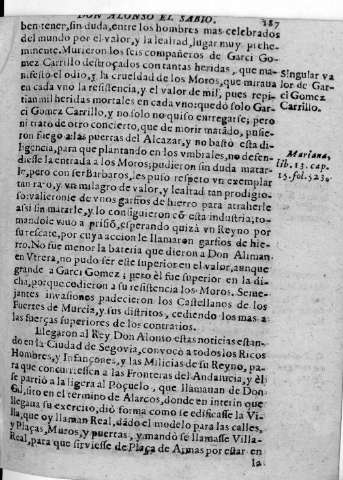 DON ALONSO EL SABIO.
187
ben tener, sin duda, entre los hombres mas celebrados
del mundo por el valor, y la lealtad, lugar muy preheminente.
Murieron los seis compañeros de Garci Gomez
Carrillo destroçados con tantas heridas, que manifestò
el odio, y la crueldad de los Moros, que miraua
en cada vno la resistencia, y el valor de mil, pues repitian
mil heridas mortales en cada vno: quedò solo Garci
Gomez Carrillo, y no solo no quiso entregarse; pero
ni tratò de otro concierto, que de morir matãdo, pusieron
fuego à las puertas del Alcazar, y no bastò esta diligencia,
para que plantando en los vmbrales, no defendiesse
la entrada à los Moros; pudieron sin duda matarle,
pero con ser Barbaros, les puso respeto vn exemplar
tan raro, y vn milagro de valor, y lealtad tan prodigioso:
valieronse de vnos garfios de hierro para atraherle
assi sin matarle, y lo consiguieron cõ esta industria, tomandole
viuo à prisiõ, esperando quizà vn Reyno por
su rescate, por cuya accion le llamaron garfios de hierro.
No fue menor la bateria que dieron a Don Aliman
en Vtrera, no pudo ser este superior en el valor, aunque
grande à Garci Gomez; pero él fue superior en la dicha,
porque cedieron a su resistencia los Moros. Semejantes
invasiones padecieron los Castellanos de los
Fuertes de Murcia, y sus distritos, cediendo los mas à
las fuerças superiores de los contrarios.
Llegaron al Rey Don Alonso estas noticias estando
en la Ciudad de Segovia, convocò a todos los Ricos
Hombres, y Infançones, y las Milicias de su Reyno, para
que concurriessen a las Fronteras del Andaluzia, y él
se partiò a la ligera al Poçuelo, que llamauan de Don
Gil, sito en el termino de Alarcos, donde en interin que
llegaua su exercito, diò forma como se edificasse la Villa,
que oy llaman Real, dãdo el modelo para las calles,
y Plaças, Muros, y puertas, y mandò se llamasse Villa-
Real, para que sirviesse de Plaça de Armas por estar en
la
Singular valor
de Garci
Gomez
Carrillo.
Mariana,
lib. 13. cap.
15. fol. 523.